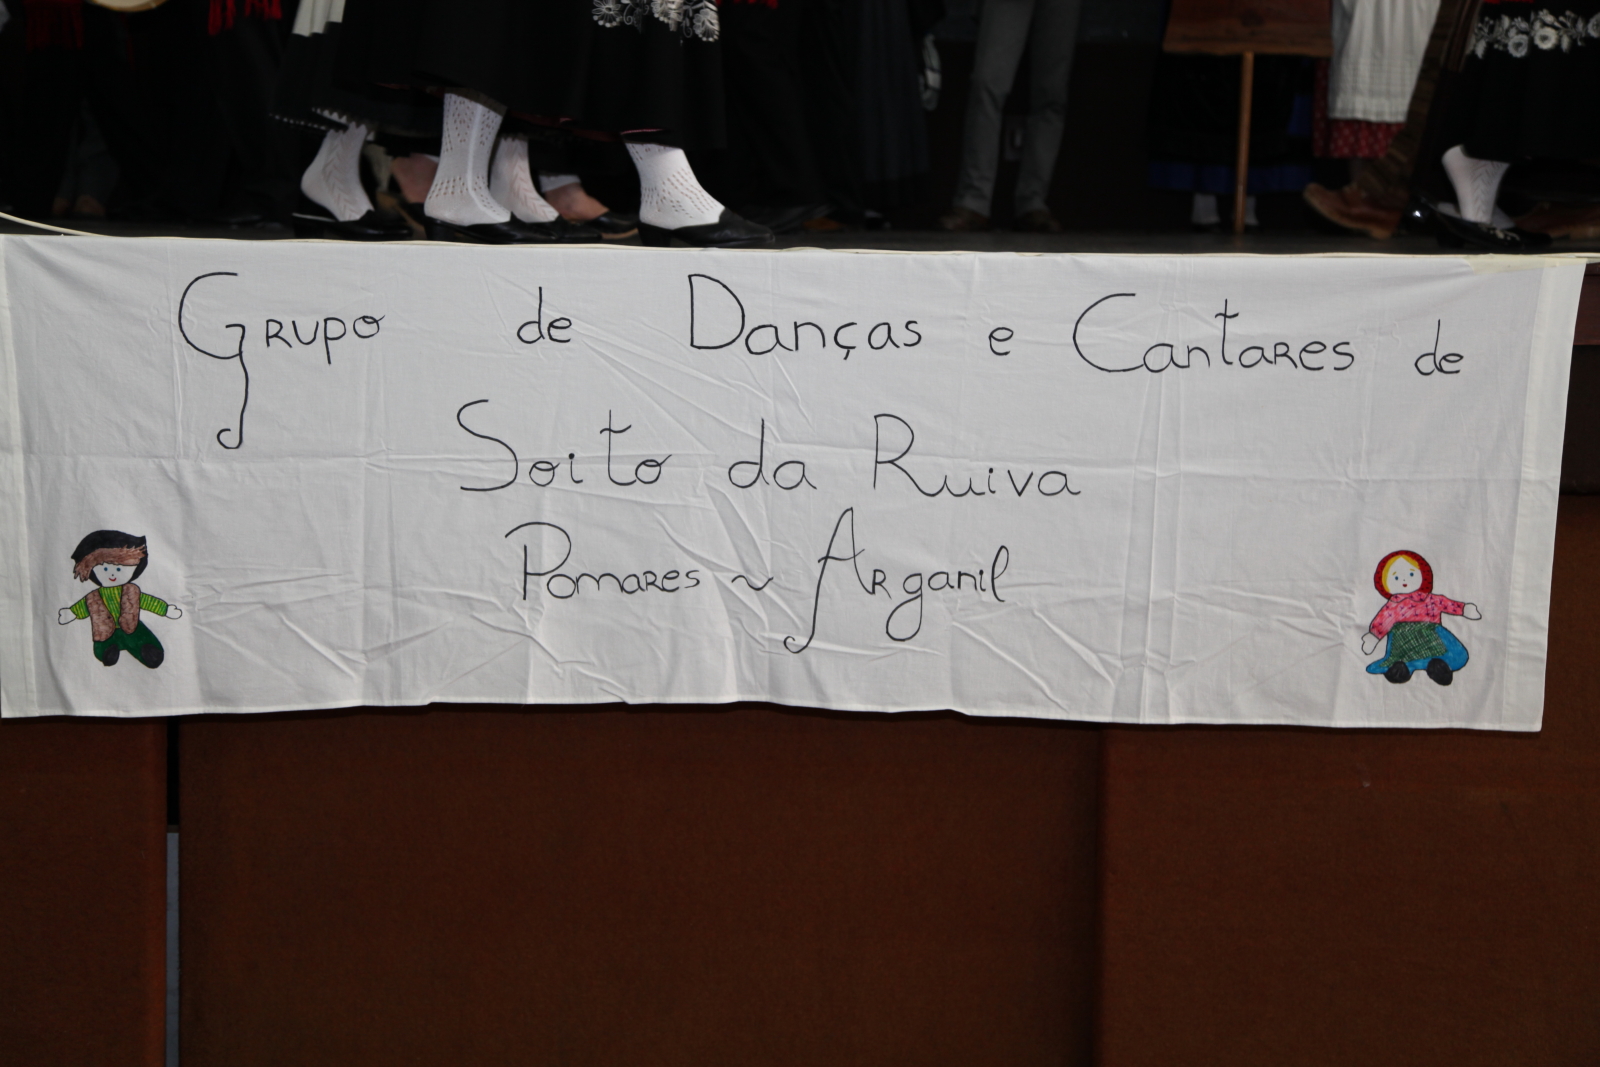 Grupo de Danças e Cantares de
Soito da Ruiva
Pomares ~ Arganil